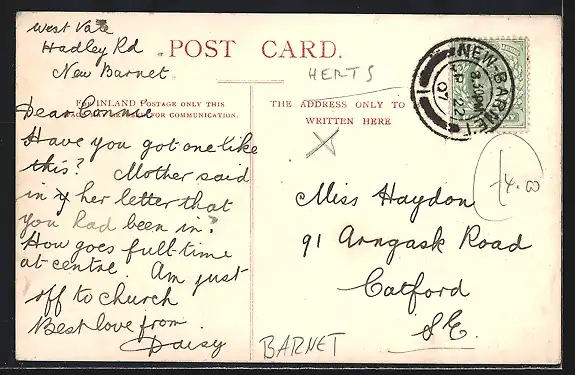 West Vale
Hadley Rd
New Barnet
POST CARD.
HERTS
FOR INLAND POSTAGE ONLY THIS
FOR COMMUNICATION.
THE ADDRESS ONLY TO
WRITTEN HERE
NEW BARNET
22
07
4.00
Dear Connie
Have you got one like
this? Mother said
in her letter that
you had been in?
How goes full-time
at centre. Am just
off to church
Best love from
Daisy
Miss Haydon
91 Arngask Road
Catford
S.E.
BARNET